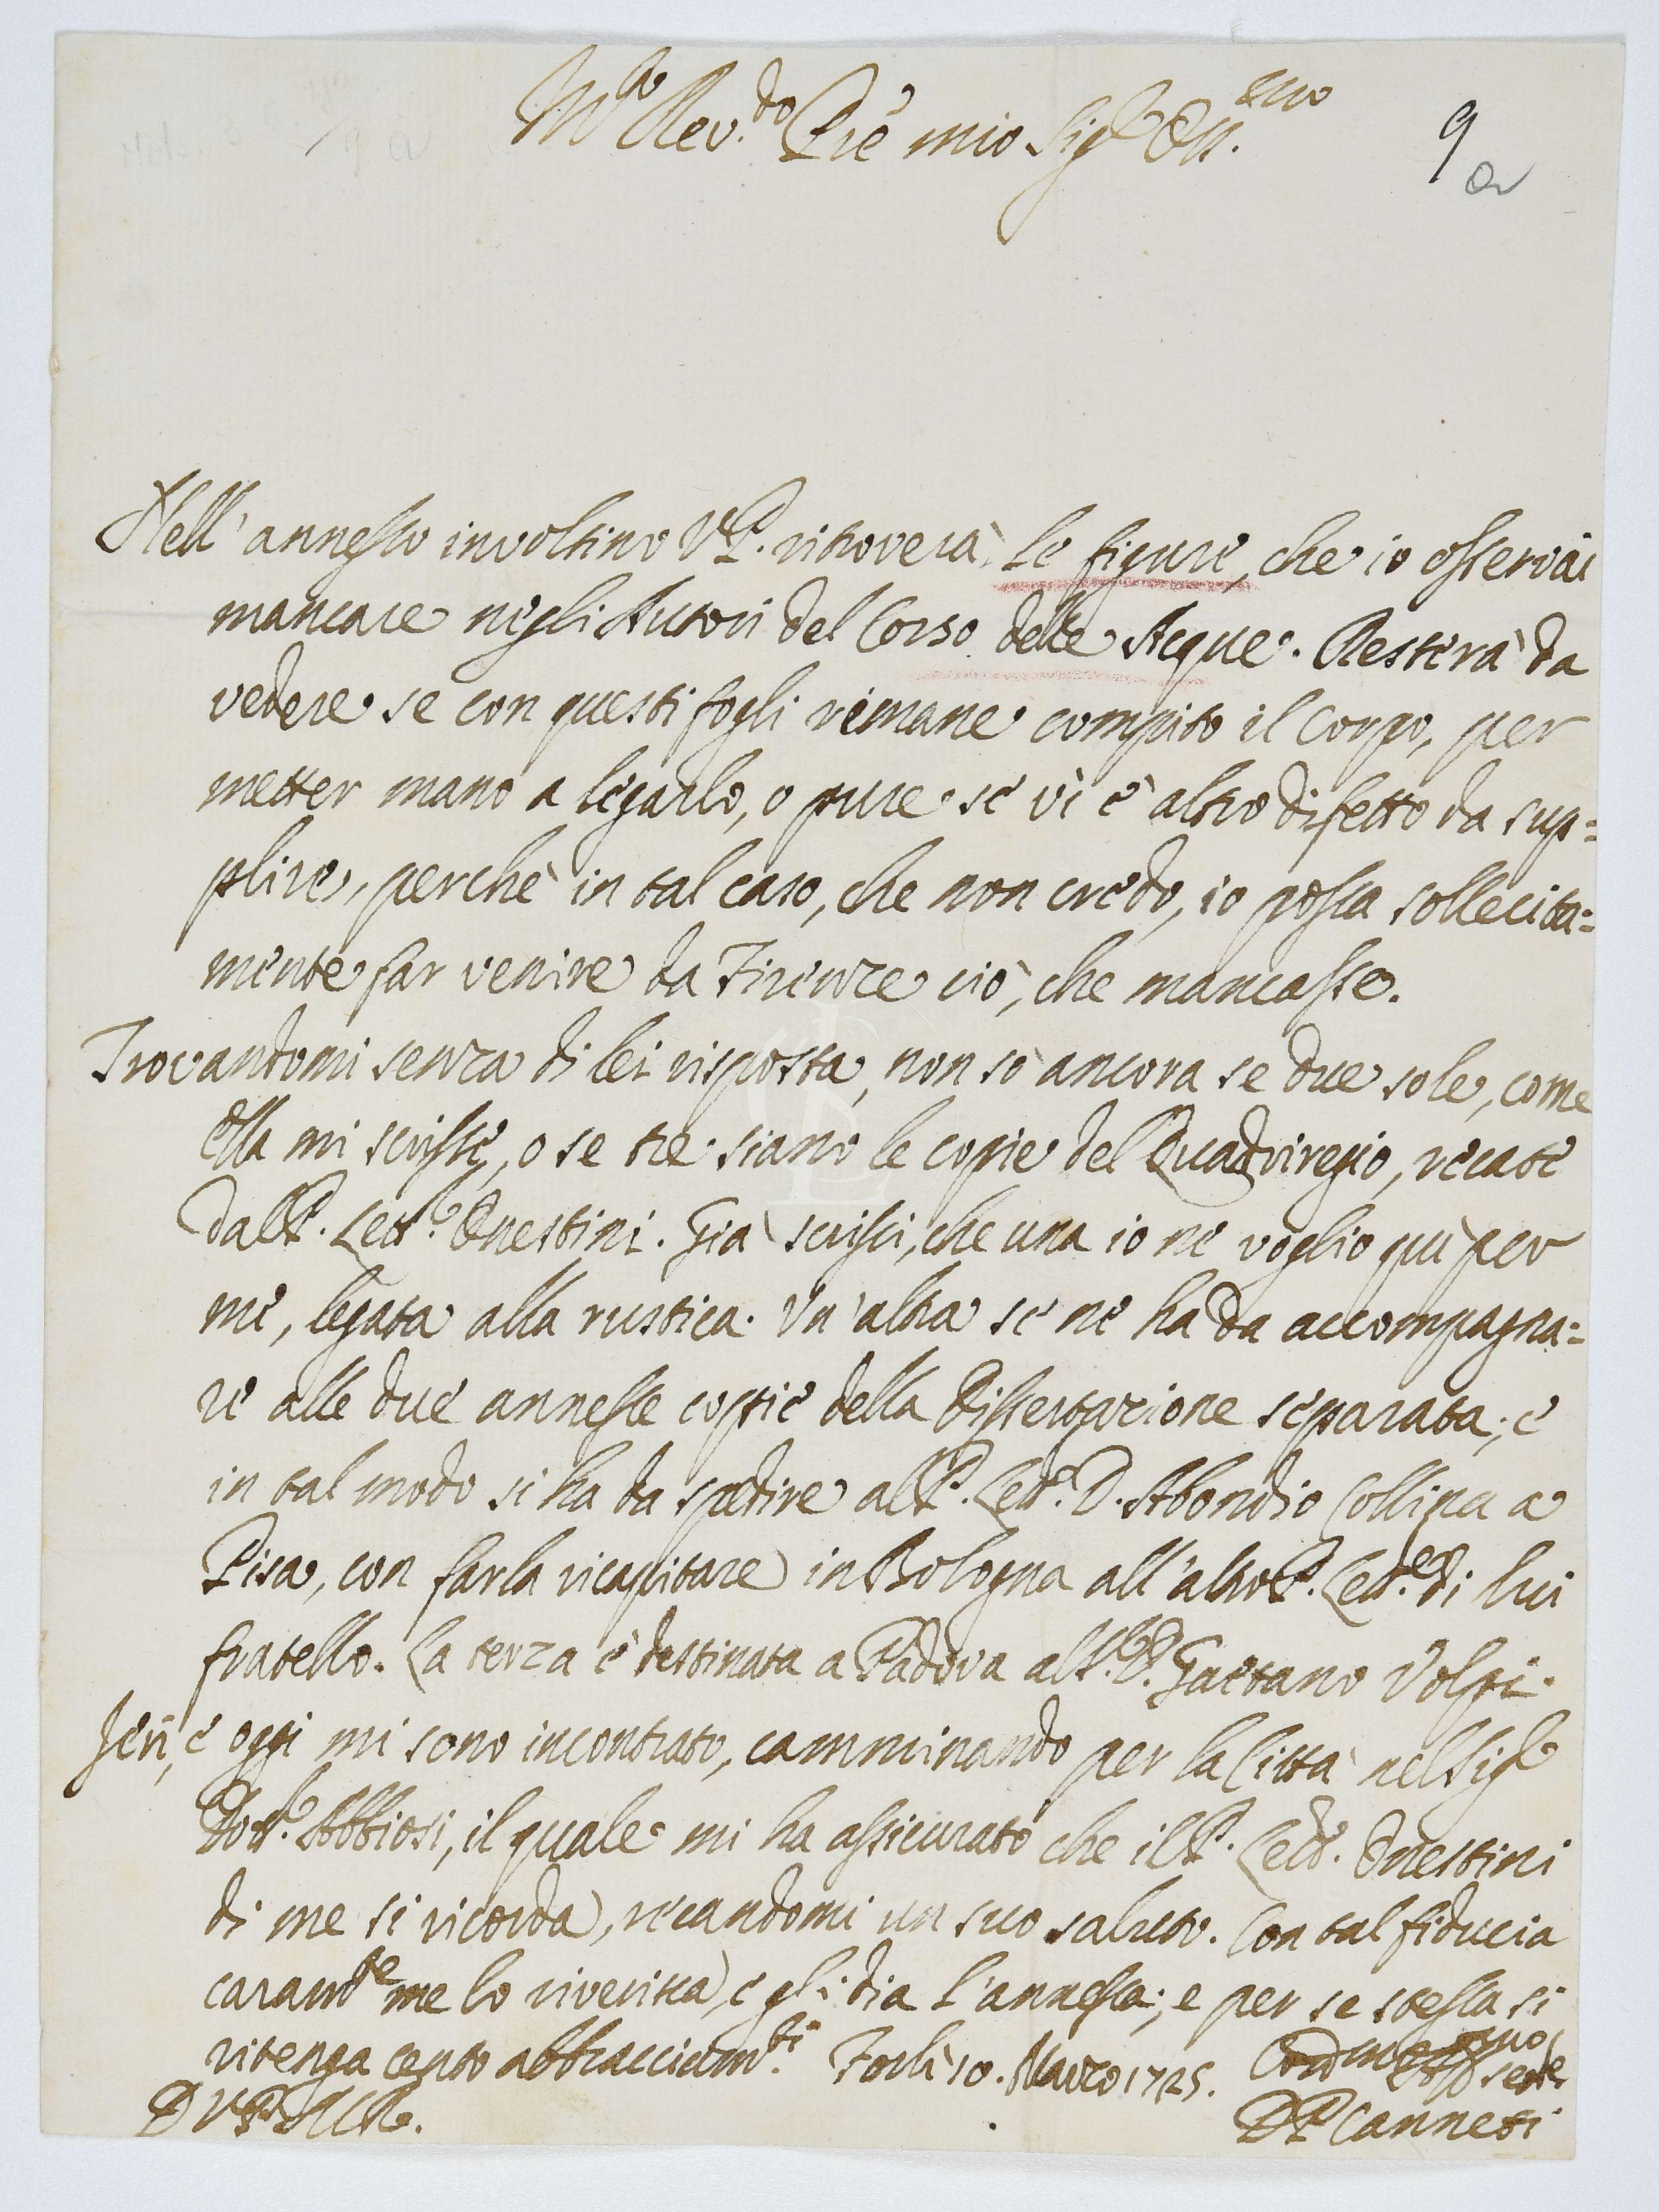 M.o Rev.do Prē mio Sig.r Oss.mo
9
Nell' annesso involtino V.P. ritroverà le figure, che io osservai
mancare negli Autori del Corso delle Acque. Resterà da
vedere se con questi fogli rimane compito il Corpo, per
metter mano a legarlo, o pure se vi è altro difetto da sup=
plire, perchè in tal caso, che non credo, io possa sollecita=
mente far venire da Firenze ciò, che mancasse.
Trovandomi senza di lei risposta, non sò ancora se due sole, come
Ella mi scrisse, o se tre siano le copie del Quadriregio, recate
dal P. Lett.e Onestini. Già scrissi, che una io ne voglio quì per
me, legata alla rustica. Un' altra se ne ha da accompagna=
re alle due annesse copie della Dissertazione separata; e
in tal modo si ha da spedire al P. Lett.e D. Abondio Collina a
Pisa, con farla ricapitare in Bologna all' altro P. Lett.e di lui
fratello. La terza è destinata a Padova al S.r D. Gaetano Volpi.
Jeri, e oggi mi sono incontrato, camminando per la Città nel Sig.r
Dott.r Abbiosi, il quale mi ha assicurato che il P. Lett. Onestini
di me si ricorda, recandomi un suo saluto. Con tal fiducia
caram.te me lo riverisca, e gli dia l'annessa; e per se stessa si
ritenga cento abbracciam.ti Forlì 10. Marzo 1725.
D V.P. M.R.
D P Canneti